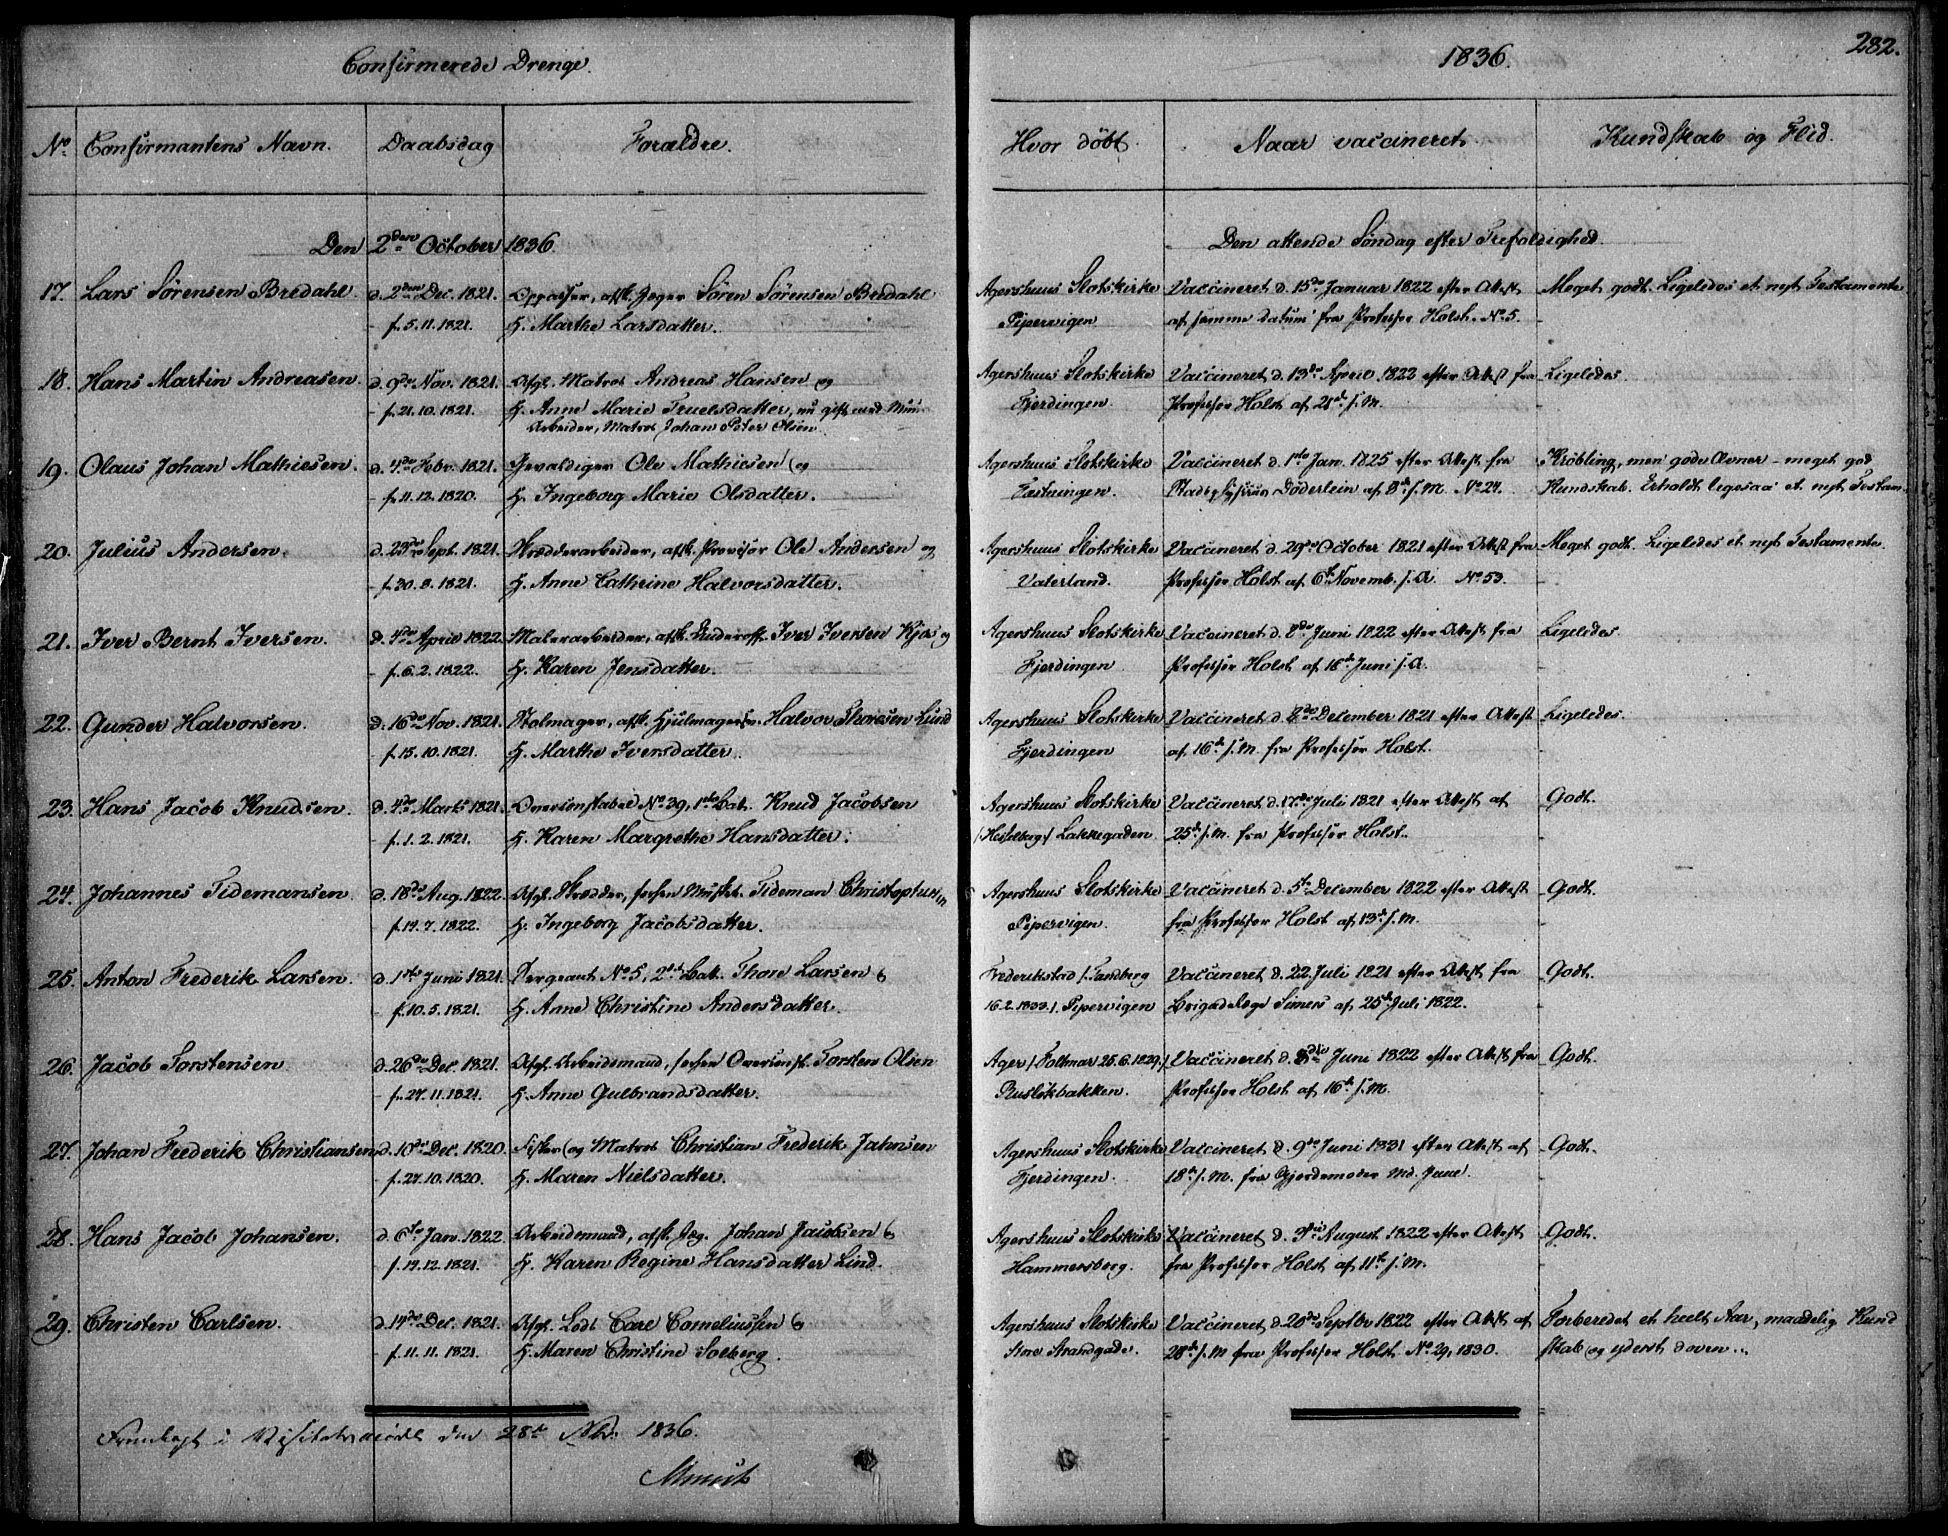 Confirmerede Drenge.
1836.
282.
No. Confirmantens Navn. Daabsdag Forældre. Hvor döbt. Naar vaccineret. Kundskab og Flid.
Den 2den October 1836. Den attende Söndag efter Trefoldighed.
17. Lars Sørensen Bredahl. d. 2den Dec. 1821. Oppasser, afsk. Jæger Sören Sørensen Bredahl Agershuus Slotskirke Vaccineret d. 15de Januar 1822 efter Attest Meget godt. Ligeledes et nyt Testamente
f. 5.11.1821. H. Marthe Larsdatter. Pipervigen af samme Datum fra Professor Holst. No. 5.
18. Hans Martin Andreasen. d. 9de Nov. 1821. Afg. Matros Andreas Hansen og Agershuus Slotskirke Vaccineret d. 13de April 1822 efter Attest fra Ligeledes.
f. 21.10.1821. H. Anne Marie Truelsdatter, nu gift med Fjerdingen. Professor Holst af 21de s. M.
Arbeider, Matros Johan Peter Olsen.
19. Olaus Johan Mathiesen. d. 4de Febr. 1821. Gevaldiger Ole Mathiesen og Agershuus Slotskirke Vaccineret d. 1ste Jan. 1825 efter Attest fra Kröbling, men gode Evner – meget god
f. 11.12.1820. H. Ingeborg Marie Olsdatter. Fæstningen. Stadsphysicus Döderlein af 8de s. M. No. 24. Kundskab. Erholdt ligesaa et nyt Testam.
20. Julius Andersen. d. 23de Sept. 1821. Skrædderarbeider, afsk. Provisor Ole Andersen og Agershuus Slotskirke Vaccineret d. 29de October 1821 efter Attest fra Meget godt. Ligeledes et nyt Testamente.
f. 20.8.1821. H. Anne Cathrine Halvorsdatter. Vaterland. Professor Holst af 6te Novemb. s. A. No. 53.
21. Iver Bernt Iversen. d. 4de April 1822. Malerarbeider, afsk. Underoff. Iver Iversen Kjøs og Agershuus Slotskirke Vaccineret d. 8de Juni 1822 efter Attest fra Ligeledes.
f. 6.2.1822. H. Karen Jensdatter. Fjerdingen Professor Holst af 16de Juni s. A.
22. Gunder Halvorsen. d. 16de Nov. 1821. Stolmager, afsk. Hjulmagersv. Halvor Thoresen Lund Agershuus Slotskirke Vaccineret d. 8de December 1821 efter Attest Ligeledes.
f. 15.10.1821. H. Marthe Iversdatter. Fjerdingen af 16de s. M. fra Professor Holst.
23. Hans Jacob Knudsen. d. 4de Marts 1821. Overconstabel No. 39, 1ste Bat. Knud Jacobsen Agershuus Slotskirke Vaccineret d. 17de Juli 1821 efter Attest af Godt.
f. 1.2.1821. H. Karen Margrethe Hansdatter. /Hesselberg/ Lakkegaden. 25de s. M. fra Professor Holst.
24. Johannes Tidemansen. d. 18de Aug. 1822. Afg. Skrædder, forhen Musket. Tideman Christophersen Agershuus Slotskirke Vaccineret d. 5te December 1822 efter Attest Godt.
f. 19.7.1822. H. Ingeborg Jacobsdatter. Pipervigen. fra Professor Holst af 13de s. M.
25. Anton Frederik Larsen. d. 1ste Juni 1821. Sergeant No. 5, 2det Bat. Thore Larsen & Frederikstad /Tandberg Vaccineret d. 22 Juli 1821 efter Attest fra Godt.
f. 10.5.1821. H. Anne Christine Andersdatter. 16.2.1833./ Pipervigen Brigadelæge Simers af 25de Juli 1822.
26. Jacob Torstensen d. 26de Dec. 1821. Afg. Arbeidsmand, forhen Overconst. Torsten Olsen Ager /Foltmar 25.6.1829./ Vaccineret d. 8de Juni 1822 efter Attest fra Godt.
f. 27.11.1821. H. Anne Gulbrandsdatter. Ruslökbakken. Professor Holst af 16de s. M.
27. Johan Frederik Christiansen d. 10de Dec. 1820. Fisker og Matros Christian Frederik Jahnsen Agershuus Slotskirke Vaccineret d. 9de Juni 1831 efter Attest af Godt.
f. 27.10.1820. H. Maren Nielsdatter. Fjerdingen. 18de s. M. fra Gjordemoder Md. Juul.
28. Hans Jacob Johansen. d. 6te Jan. 1822. Arbeidsmand, afsk. Jæg. Johan Jacobsen & Agershuus Slotskirke Vaccineret d. 3die August 1822 efter Attest Godt.
f. 19.12.1821. H. Karen Regine Hansdatter Lind. Hammersborg. fra Professor Holst af 11te s. M.
29. Christen Carlsen. d. 14de Dec. 1821. Afg. Lods Carl Corneliussen & Agershuus Slotskirke Vaccineret d. 20de Septbr 1822 efter Attest af Forberedet et heelt Aar, maadelig Kund
f. 11.11.1821. H. Maren Christine Solberg. Store Strandgade. 28de s. M. fra Professor Holst No. 29, 1830. skab og yderst doven.
Fremlagt i Visitatsmödet den 28de 1836.